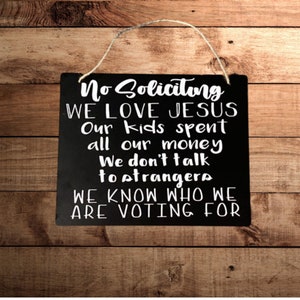 No Soliciting
WE LOVE JESUS
Our kids spent
all our money
We don't talk
to strangers
WE KNOW WHO WE
ARE VOTING FOR